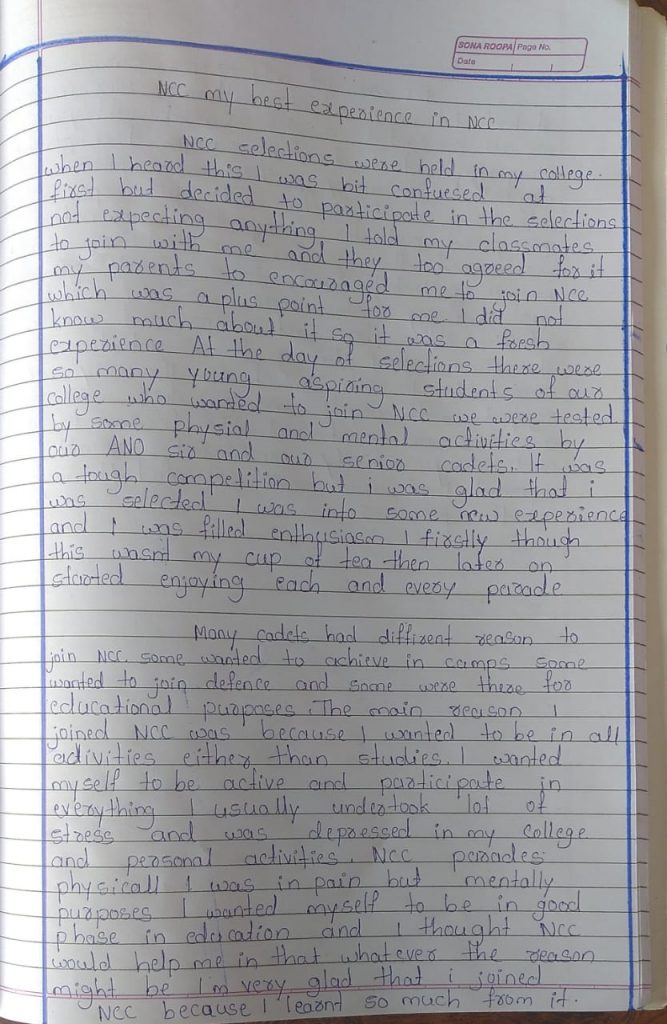 SONA ROOPA Page No.
Date
NCC my best experience in NCC
NCC selections were held in my college.
when I heard this I was bit confuesed at
first but decided to participate in the selections
not expecting anything I told my classmates
to join with me and they too agreed for it
my parents to encouraged me to join NCC
which was a plus point for me I did not
know much about it so it was a fresh
experience At the day of selections there were
so many young aspiring students of our
college who wanted to join NCC we were tested
by some physial and mental activities by
our ANO sir and our senior cadets. It was
a tough competition but i was glad that i
was selected I was into some new experience
and I was filled enthusiasm I firstly though
this wasn't my cup of tea then later on
started enjoying each and every parade
Many cadets had diffirent reason to
join NCC. some wanted to achieve in camps some
wanted to join defence and some were there for
educational purposes. The main reason I
joined NCC was because I wanted to be in all
activities either than studies. I wanted
myself to be active and participate in
everything I usually undertook lot of
stress and was depressed in my college
and personal activities. NCC parades
physicall I was in pain but mentally
purposes I wanted myself to be in good
phase in education and I thought NCC
would help me in that whatever the reason
might be I'm very glad that i joined
NCC because I learnt so much from it.